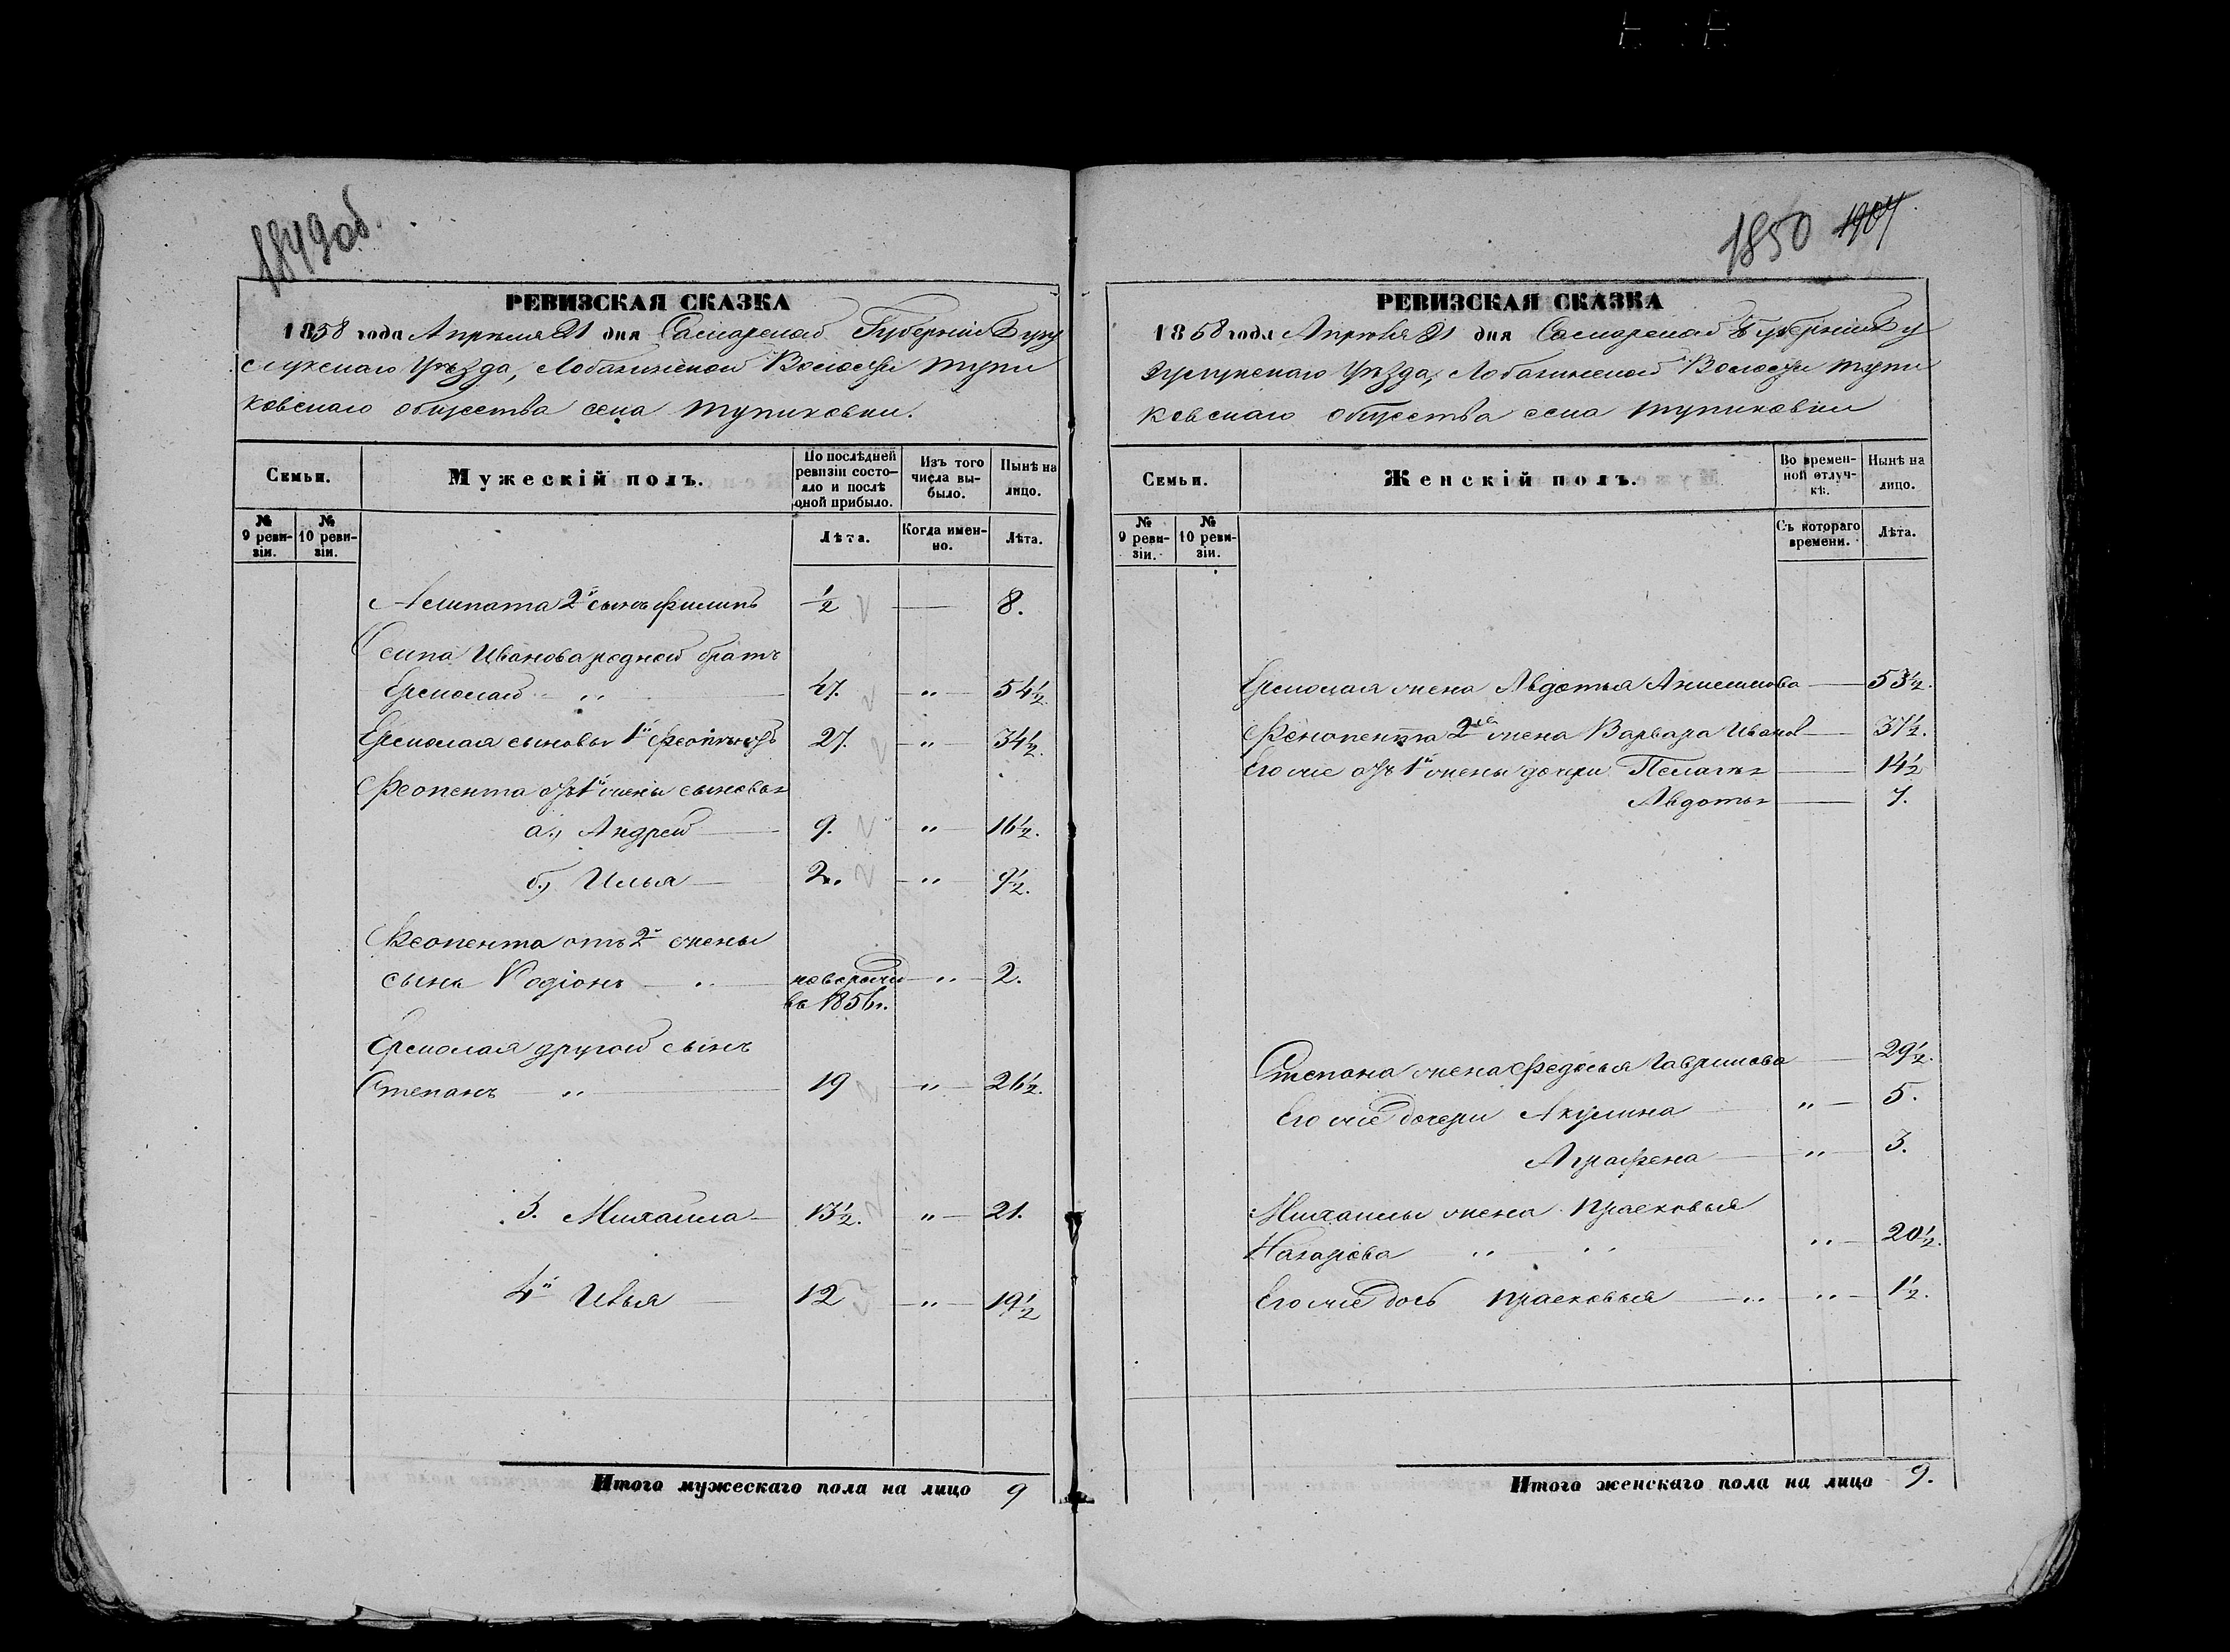 1849об.
РЕВИЗСКАЯ СКАЗКА
1858 года Апреля 21 дня Самарской Губернии Бугу
слукскаго Уѣзда, Лобазинской Волости тупи
ковскаго общества села тупиковки.
Семьи.
Мужескій полъ.
По послѣдней ревизіи состояло и послѣ оной прибыло.
Изъ того числа выбыло.
Нынѣ на лицо.
№ 9 ревизіи.
№ 10 ревизіи.
Лѣта.
Когда именно.
Лѣта.
2й сынъ Филипъ ½ — 8.
Осипа Иванова родной братъ
Ермолай „ 47. — „ — 54½.
Ермолая сыновья 1й 27. — „ — 34½.
Феопента отъ 1й жены сыновья
а., Андрей — 9. „ — 16½.
б., Илья — 2. — „ — 9½.
Феопента отъ 2й жены
сынъ Родіонъ — „ — новорожд — „ — 2.
въ 1856г.
Ермолая другой сынъ
Степанъ „ — 19 — „ — 26½.
3. Михаила — 13½. „ — 21.
4й — 12 — „ — 19½
Итого мужескаго пола на лицо 9
1850 1904
РЕВИЗСКАЯ СКАЗКА
1858 года Апреля 21 дня Самарской Губерніи Бу
зулукскаго Уѣзда, Лобазинской Волости тупи
ковскаго общества села тупиковки
Семьи.
Женскій полъ.
Во временной отлучкѣ.
Нынѣ на лицо.
№ 9 ревизіи.
№ 10 ревизіи.
Съ котораго времени.
Лѣта.
Ермолая жена Авдотья Анисимова — 53½.
2я жена Варвара Иванов — 37½.
Его же отъ 1й жены дочери Пелагея — 14½
Авдотья — 7.
Степана жена Федосья Гаврилова — 29½.
Его же дочери Акулина „ — 5.
Аграфена — „ — 3.
Михаилы жена Прасковья
Назарова „ „ „ — 20½.
Его же дочь Прасковья — „ — „ — 1½.
Итого женскаго пола на лицо 9.